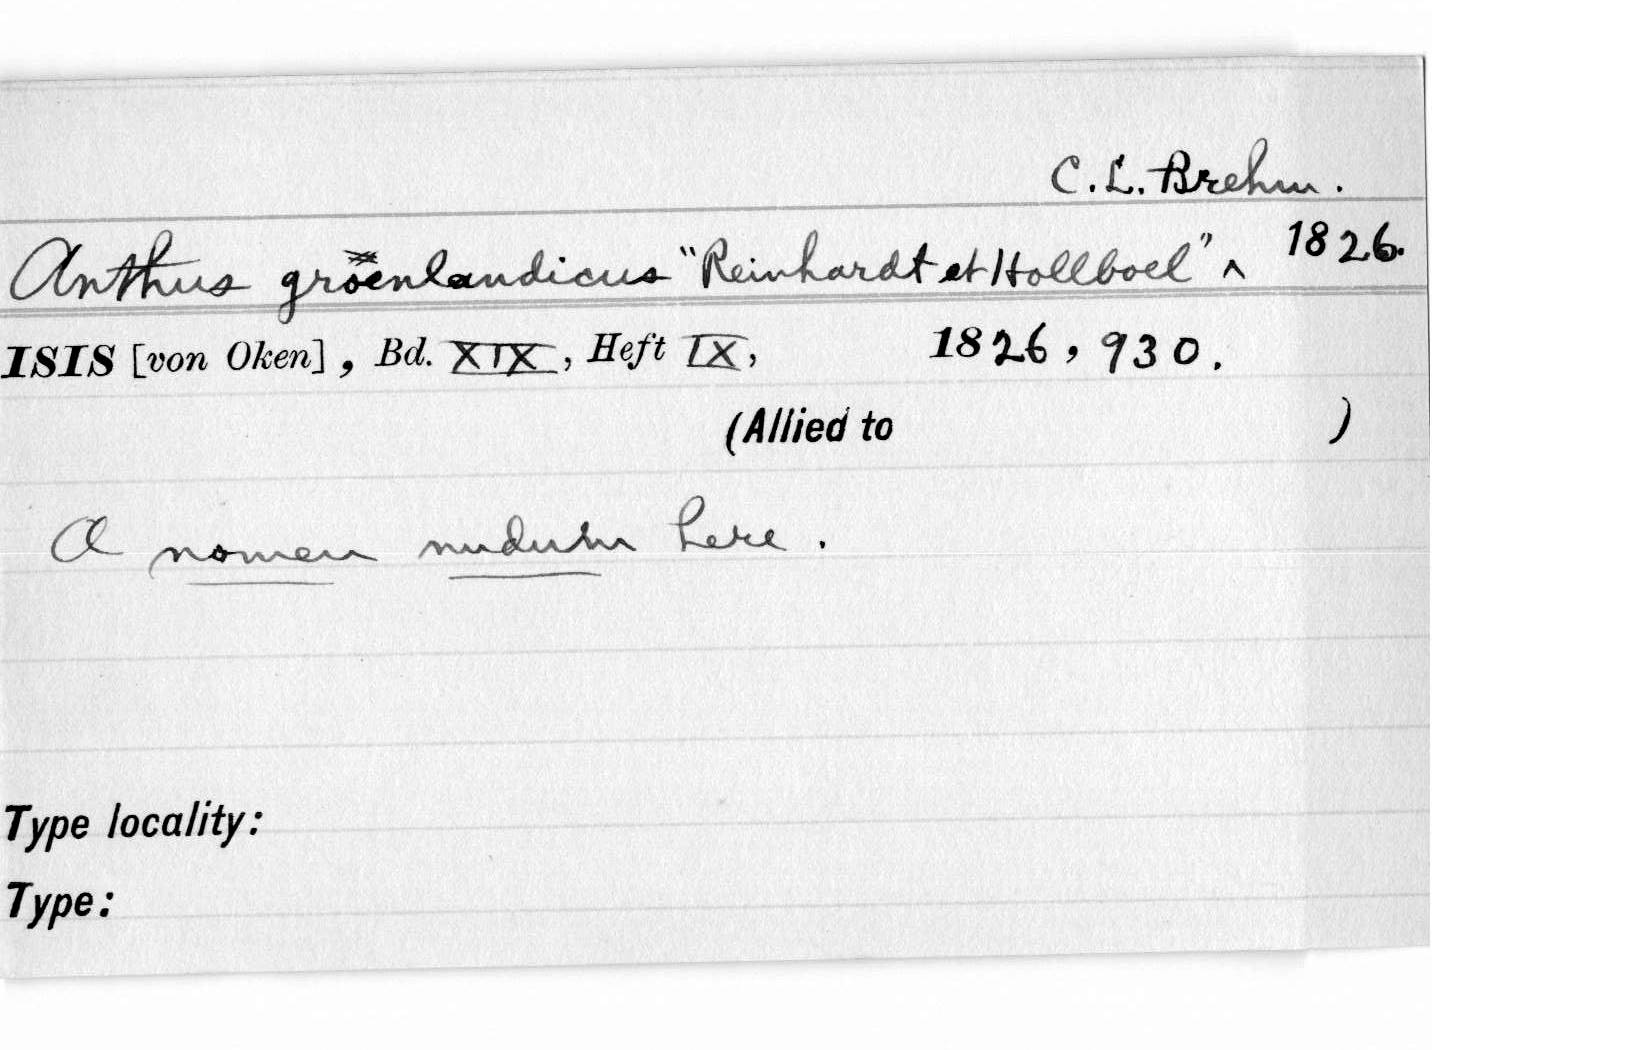 C. L. Brehm.
Anthus groenlandicus "Reinhardt et Hollboel" ^ 1826.
ISIS [von Oken], Bd. XIX, Heft IX, 1826, 930.
(Allied to )
A nomen nudum here.
Type locality:
Type: